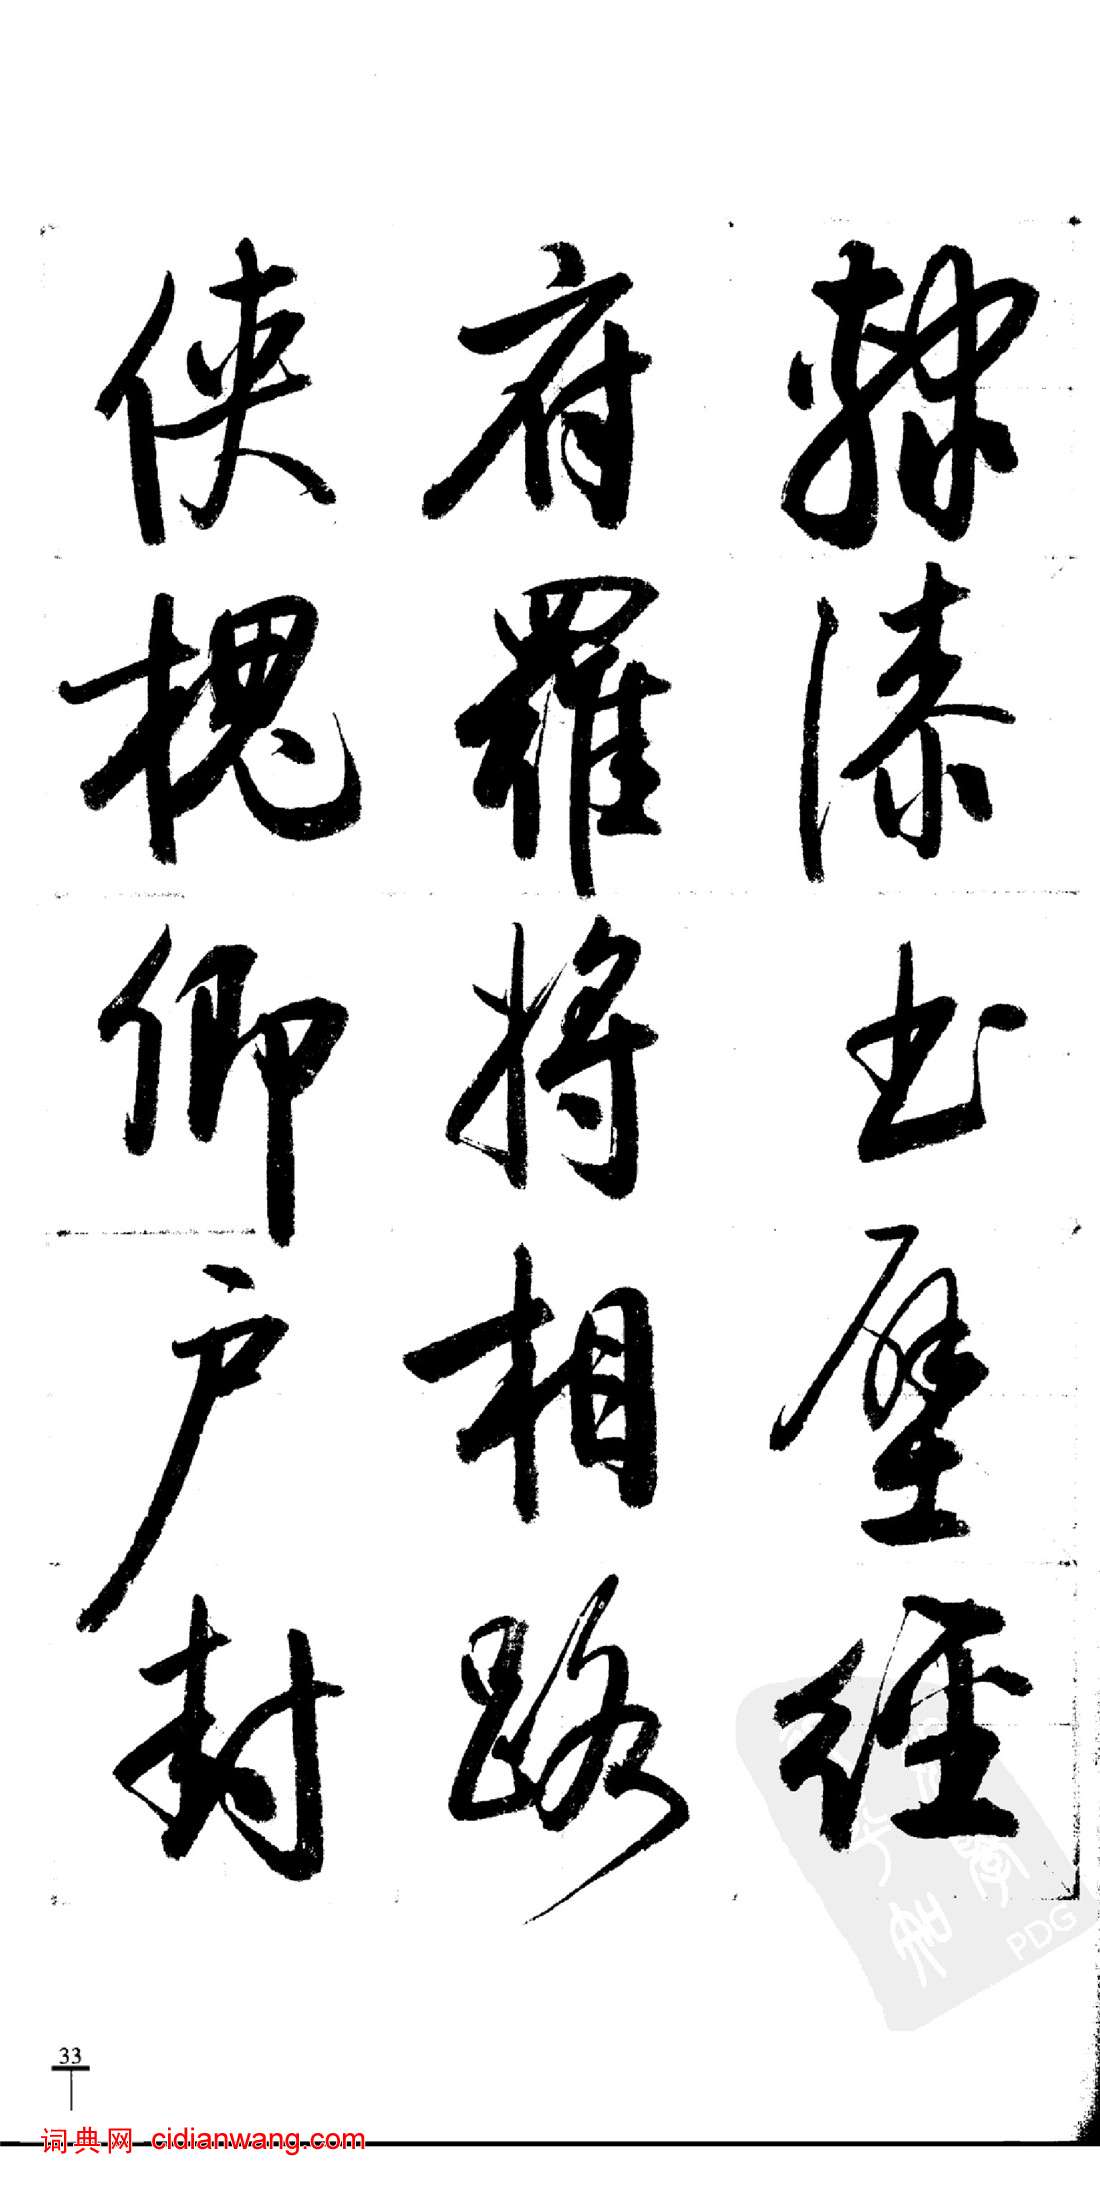 隸漆书壁經
府羅将相路
侠槐卿户封
33
词典网 cidianwang.com
PDG